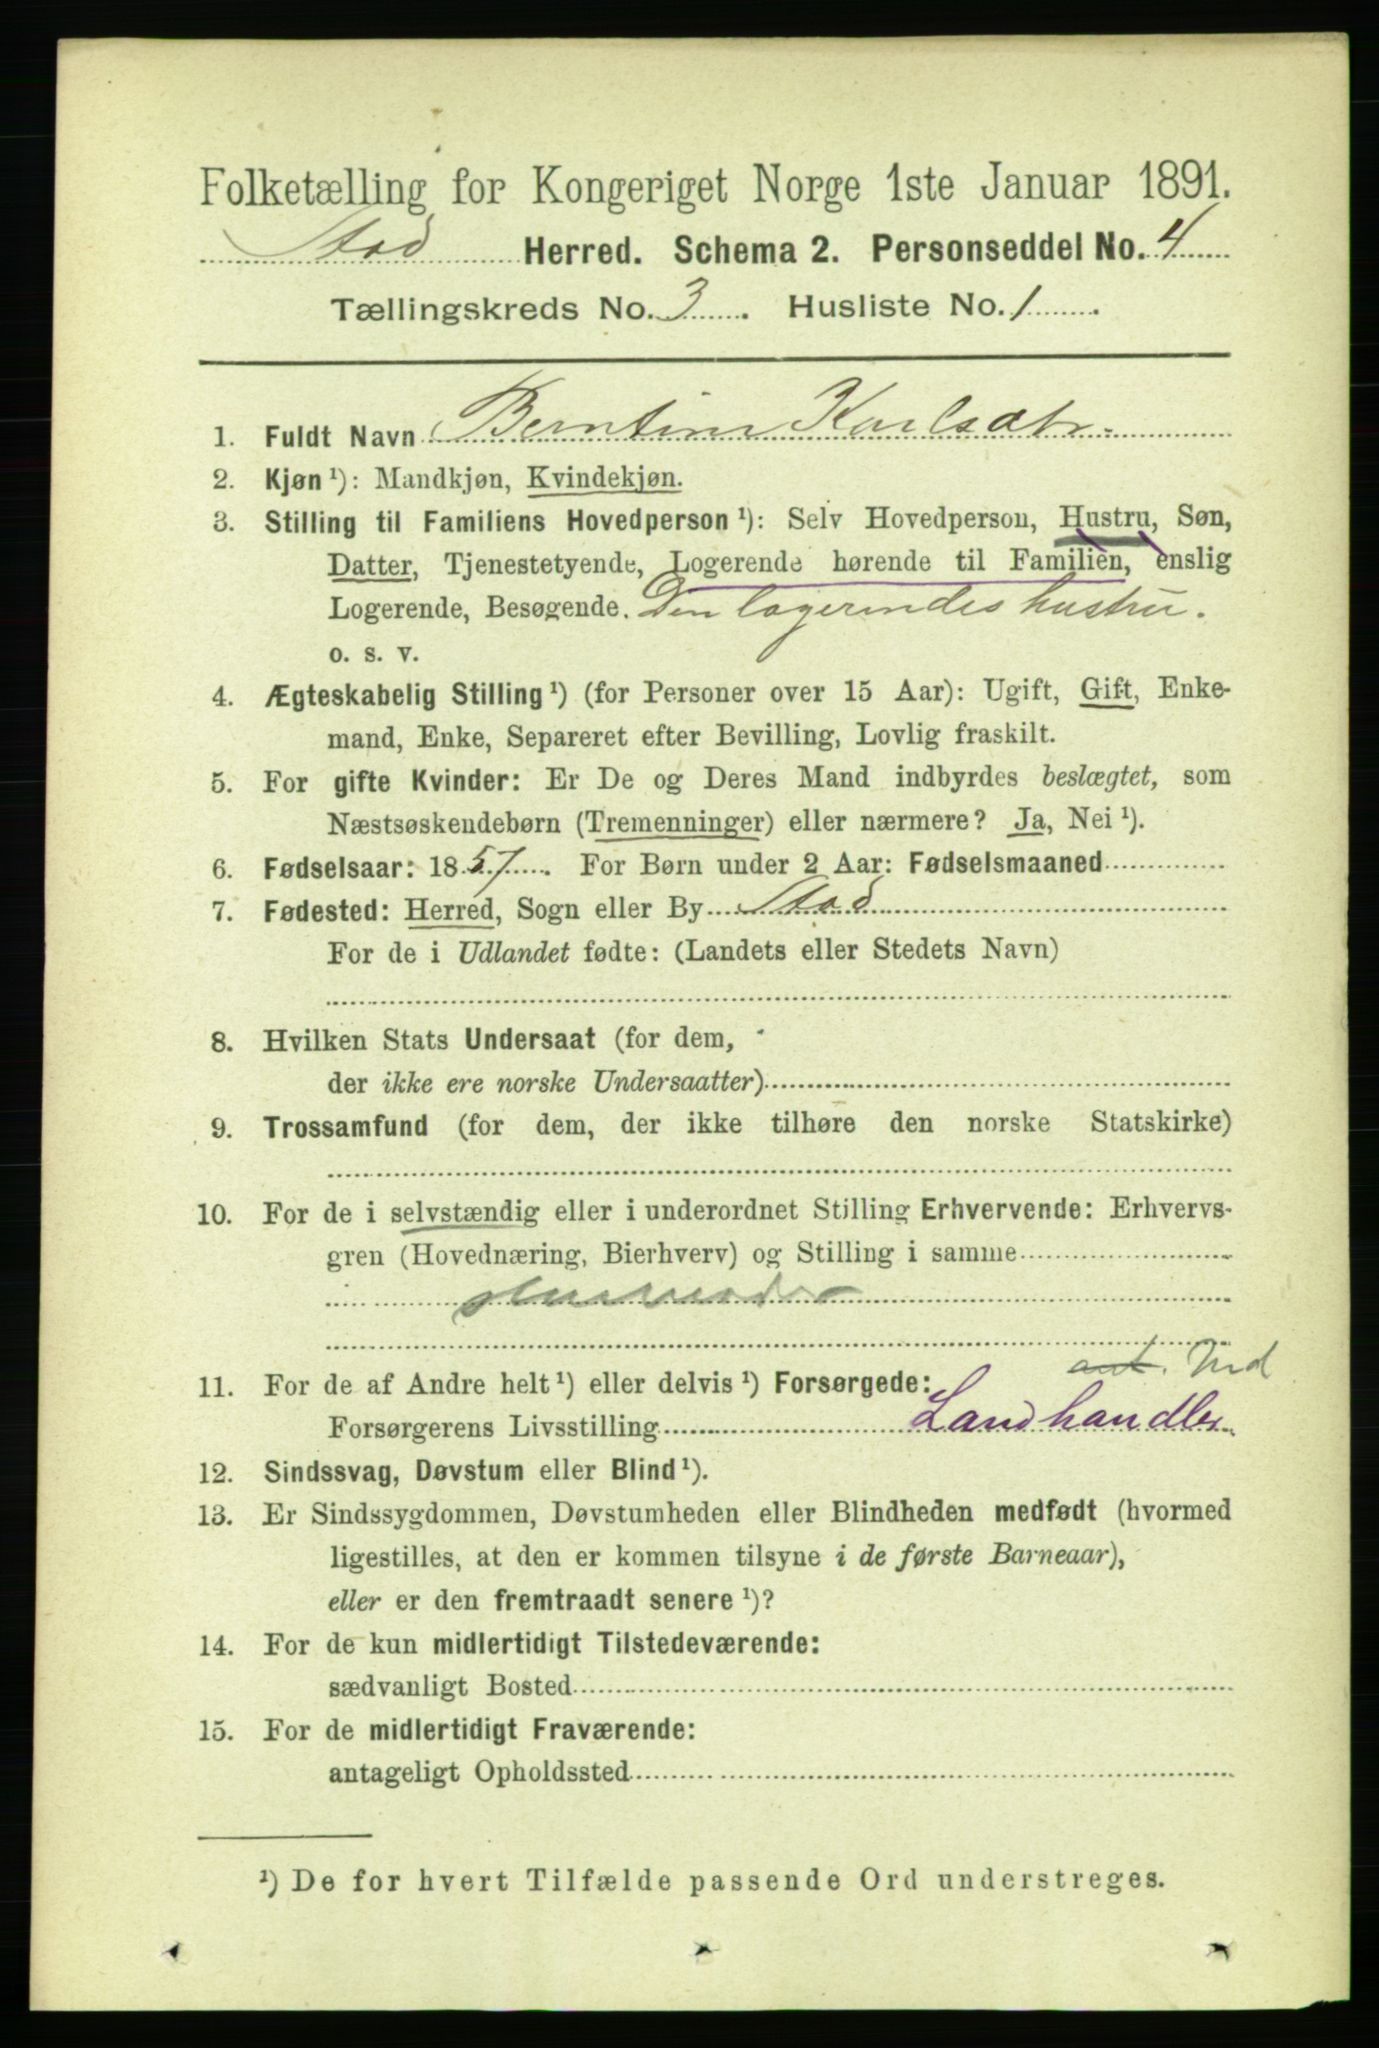 Folketælling for Kongeriget Norge 1ste Januar 1891.
Stod Herred. Schema 2. Personseddel No. 4
Tællingskreds No. 3. Husliste No. 1.
1. Fuldt Navn Berntine Karlsdtr.
2. Kjøn ¹): Mandkjøn, Kvindekjøn.
3. Stilling til Familiens Hovedperson ¹): Selv Hovedperson, Hustru, Søn,
Datter, Tjenestetyende, Logerende hørende til Familien, enslig
Logerende, Besøgende. Den logerendes hustru.
o. s. v.
4. Ægteskabelig Stilling ¹) (for Personer over 15 Aar): Ugift, Gift, Enke-
mand, Enke, Separeret efter Bevilling, Lovlig fraskilt.
5. For gifte Kvinder: Er De og Deres Mand indbyrdes beslægtet, som
Næstsøskendebørn (Tremenninger) eller nærmere? Ja, Nei ¹).
6. Fødselsaar: 1857. For Børn under 2 Aar: Fødselsmaaned
7. Fødested: Herred, Sogn eller By Stod
For de i Udlandet fødte: (Landets eller Stedets Navn)
8. Hvilken Stats Undersaat (for dem,
der ikke ere norske Undersaatter)
9. Trossamfund (for dem, der ikke tilhøre den norske Statskirke)
10. For de i selvstændig eller i underordnet Stilling Erhvervende: Erhvervs-
gren (Hovednæring, Bierhverv) og Stilling i samme
ant. Ind
11. For de af Andre helt ¹) eller delvis ¹) Forsørgede:
Forsørgerens Livsstilling Landhandler
12. Sindssvag, Døvstum eller Blind ¹).
13. Er Sindssygdommen, Døvstumheden eller Blindheden medfødt (hvormed
ligestilles, at den er kommen tilsyne i de første Barneaar),
eller er den fremtraadt senere ¹)?
14. For de kun midlertidigt Tilstedeværende:
sædvanligt Bosted
15. For de midlertidigt Fraværende:
antageligt Opholdssted
¹) De for hvert Tilfælde passende Ord understreges.